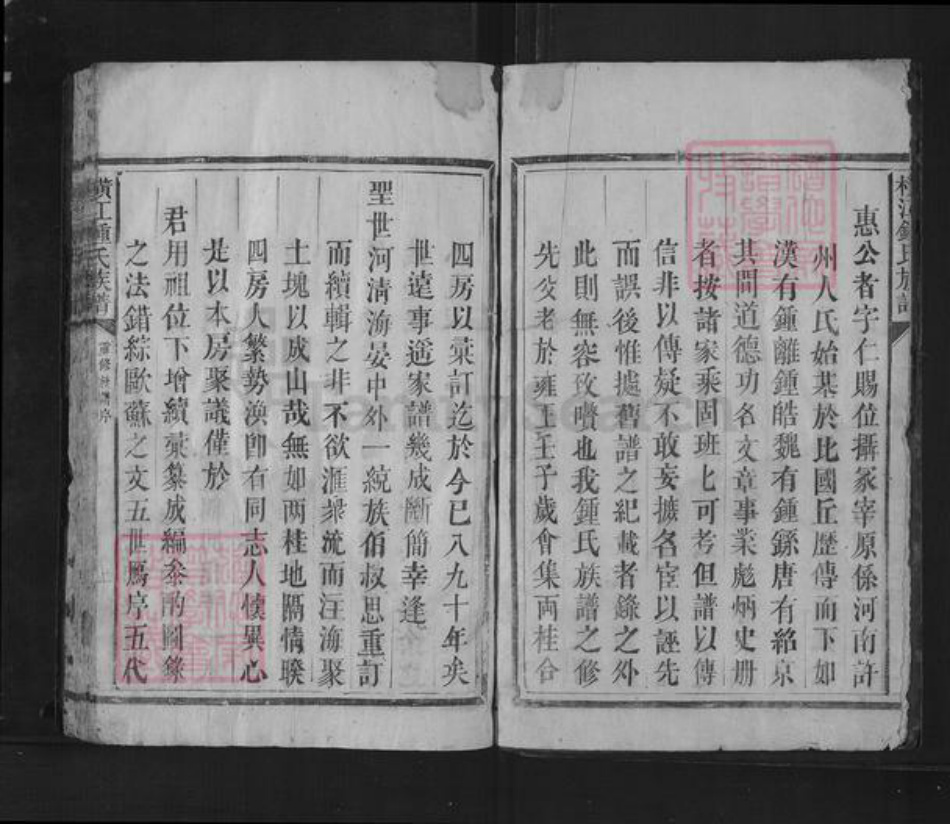 惠公者字仁賜位攝冢宰原係河南許
州人氏始基於比國丘歷傳而下如
漢有鍾離鍾皓魏有鍾繇唐有紹京
其間道德功名文章事業彪炳史册
者按諸家乘固班匕可考但譜以傳
信非以傳疑不敢妄摭名宦以誣先
而誤後惟據舊譜之紀載者錄之外
此則無容攷囋也我鍾氏族譜之修
先父老於雍正壬子歲會集両桂合
四房以彙訂迄於今已八九十年矣
世遠事遥家譜幾成斷簡幸逢
聖世河清海晏中外一統族伯叔思重訂
而續輯之非不欲滙衆流而注海聚
土塊以成山哉無如两桂地隔情睽
四房人繁勢渙卽有同志人懷異心
是以本房聚議僅於
君用祖位下增續彙纂成編叅酌圖錄
之法錯綜歐蘇之文五世爲序五代
橫江鍾氏族譜
重修族譜序